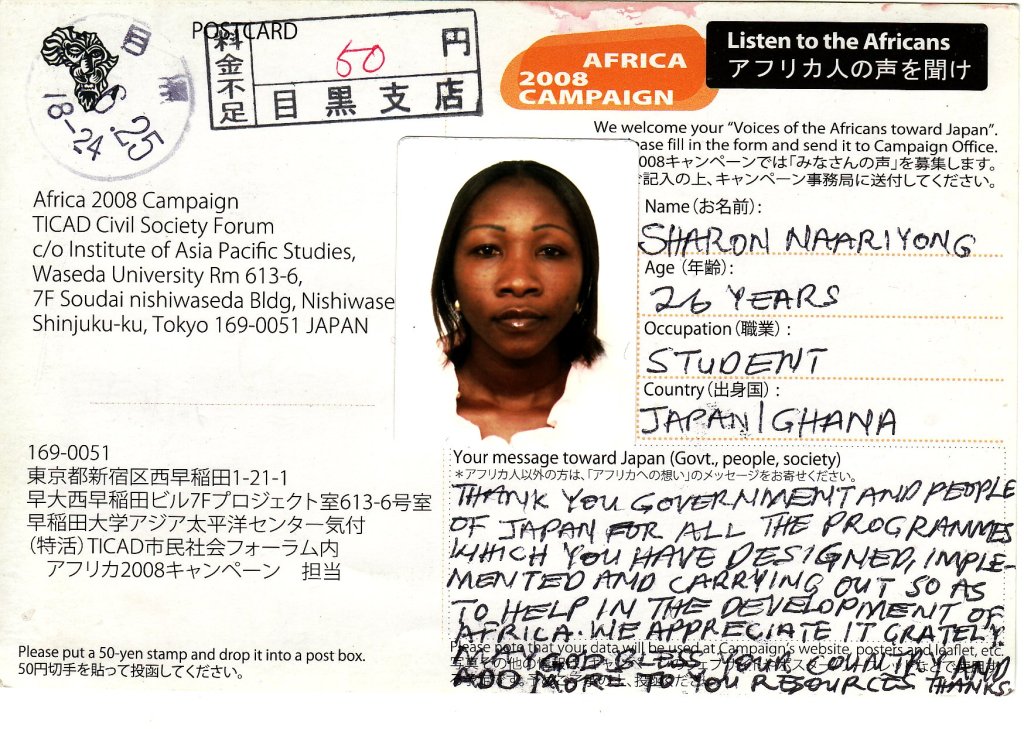 POSTCARD
料金不足
50円
目黒支店
目黒
25
18-24
AFRICA
2008
CAMPAIGN
Listen to the Africans
アフリカ人の声を聞け
We welcome your “Voices of the Africans toward Japan”.
ase fill in the form and send it to Campaign Office.
008キャンペーンでは「みなさんの声」を募集します。
ご記入の上、キャンペーン事務局に送付してください。
Africa 2008 Campaign
TICAD Civil Society Forum
c/o Institute of Asia Pacific Studies,
Waseda University Rm 613-6,
7F Soudai nishiwaseda Bldg, Nishiwase
Shinjuku-ku, Tokyo 169-0051 JAPAN
Name (お名前) :
SHARON NAARIYONG
Age (年齢) :
26 YEARS
Occupation (職業) :
STUDENT
Country (出身国) :
JAPAN/GHANA
169-0051
東京都新宿区西早稲田1-21-1
早大西早稲田ビル7Fプロジェクト室613-6号室
早稲田大学アジア太平洋センター気付
（特活）TICAD市民社会フォーラム内
アフリカ2008キャンペーン　担当
Your message toward Japan (Govt., people, society)
＊アフリカ人以外の方は、「アフリカへの想い」のメッセージをお寄せください。
THANK YOU GOVERNMENT AND PEOPLE
OF JAPAN FOR ALL THE PROGRAMMES
WHICH YOU HAVE DESIGNED, IMPLE-
MENTED AND CARRYING OUT SO AS
TO HELP IN THE DEVELOPMENT OF
AFRICA. WE APPRECIATE IT GRATELY.
Please note that your data will be used at Campaign's website, posters and leaflet, etc.
MAY GOD BLESS YOUR COUNTRY AND
ADD MORE TO YOU RESOURCES THANKS.
Please put a 50-yen stamp and drop it into a post box.
50円切手を貼って投函してください。